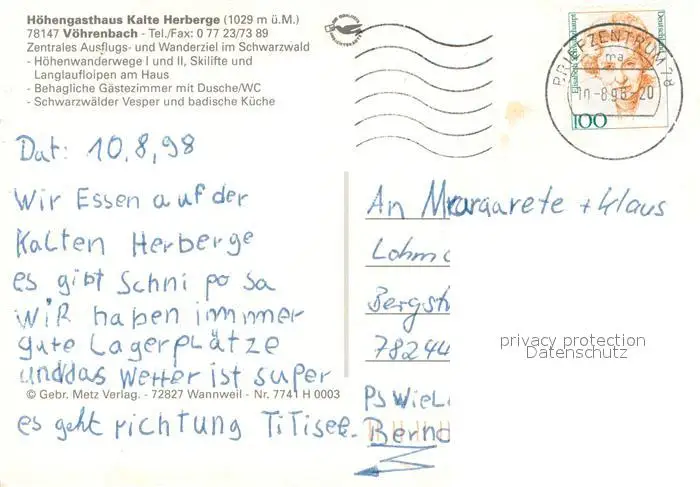 Höhengasthaus Kalte Herberge (1029 m ü.M.)
78147 Vöhrenbach - Tel./Fax: 0 77 23/73 89
Zentrales Ausflugs- und Wanderziel im Schwarzwald
- Höhenwanderwege I und II, Skilifte und
Langlaufloipen am Haus
- Behagliche Gästezimmer mit Dusche/WC
- Schwarzwälder Vesper und badische Küche
BRIEFZENTRUM 78
ma
10-8.98-20
Deutsche Bundespost
100
Dat: 10,8,98
Wir Essen auf der
Kalten Herberge
es gibt Schni po sa
WiR haben immmer
gute Lagerplätze
unddas Wetter ist super
© Gebr. Metz Verlag. - 72827 Wannweil - Nr. 7741 H 0003
es geht richtung TiTisee.
An Margarete + Klaus
Lohm
Bergst
78244
privacy protection
Datenschutz
PS Wiel
Bernd